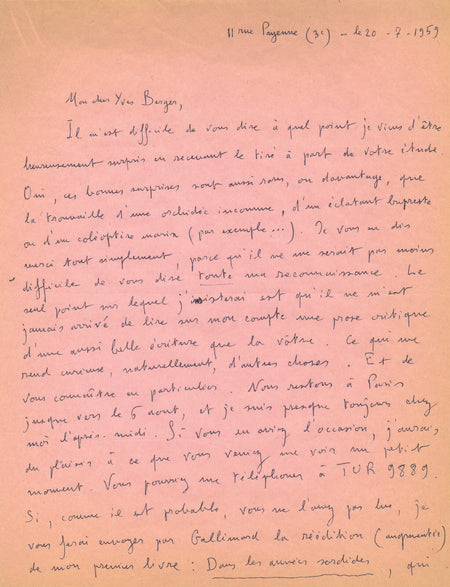 11 rue Payenne (3e) - le 20 - 7 - 1959
Mon cher Yves Berger,
Il m'est difficile de vous dire à quel point je viens d'être
heureusement surpris en recevant le tiré à part de votre étude.
Oui, ces bonnes surprises sont aussi rares, ou davantage, que
la trouvaille d'une orchidée inconnue, d'un éclatant bupreste
ou d'un coléoptère marin (par exemple...). Je vous en dis
merci tout simplement, parce qu'il ne me serait pas moins
difficile de vous dire toute ma reconnaissance. Le
seul point sur lequel j'insisterai est qu'il ne m'est
jamais arrivé de lire sur mon compte une prose critique
d'une aussi belle écriture que la vôtre. Ce qui me
rend curieux, naturellement, d'autres choses. Et de
vous connaître en particulier. Nous restons à Paris
jusque vers le 5 août, et je suis presque toujours chez
moi l'après-midi. Si vous en aviez l'occasion, j'aurais
du plaisir à ce que vous veniez me voir un petit
moment. Vous pourriez me téléphoner à TUR 9889.
Si, comme il est probable, vous ne l'avez pas lue, je
vous ferai envoyer par Gallimard la réédition (augmentée)
de mon premier livre : Dans les années sordides, qui